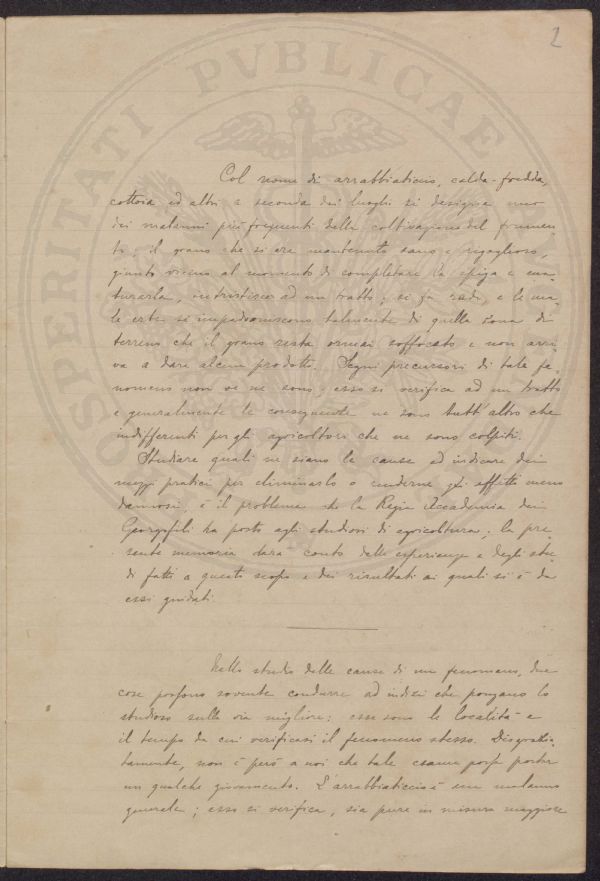 2
Col nome di arrabbiaticcio, calda-fredda,
cottoia ed altri a seconda dei luoghi si designa uno
dei malanni più frequenti della coltivazione del frumen-
to; il grano che si era mantenuto sano e rigoglioso,
giunto vicino al momento di completare la spiga e ma-
turarla, intristisce ad un tratto; si fa rado, e le ma-
le erbe si impadroniscono talmente di quella zona di
terreno che il grano resta ormai soffocato e non arri-
va a dare alcun prodotto. Segni precursori di tale fe-
nomeno non ve ne sono; esso si verifica ad un tratto
e generalmente le conseguenze ne sono tutt'altro che
indifferenti per gli agricoltori che ne sono colpiti.
Studiare quali ne siano le cause ed indicare dei
mezzi pratici per eliminarlo o renderne gli effetti meno
dannosi, è il problema che la Regia Accademia dei
Georgofili ha posto agli studiosi di agricoltura; la pre-
sente memoria darà conto delle esperienze e degli stu-
di fatti a questo scopo e dei risultati ai quali si è da
essi guidati.
Nello studio delle cause di un fenomeno, due
cose possono sovente condurre ad indizi che pongano lo
studioso sulla via migliore: esse sono le località e
il tempo da cui verificasi il fenomeno stesso. Disgrazia-
tamente, non è però a noi che tale esame possa portar
un qualche giovamento. L'arrabbiaticcio è un malanno
generale; esso si verifica, sia pure in misura maggiore
PROSPERITATI PVBLICAE